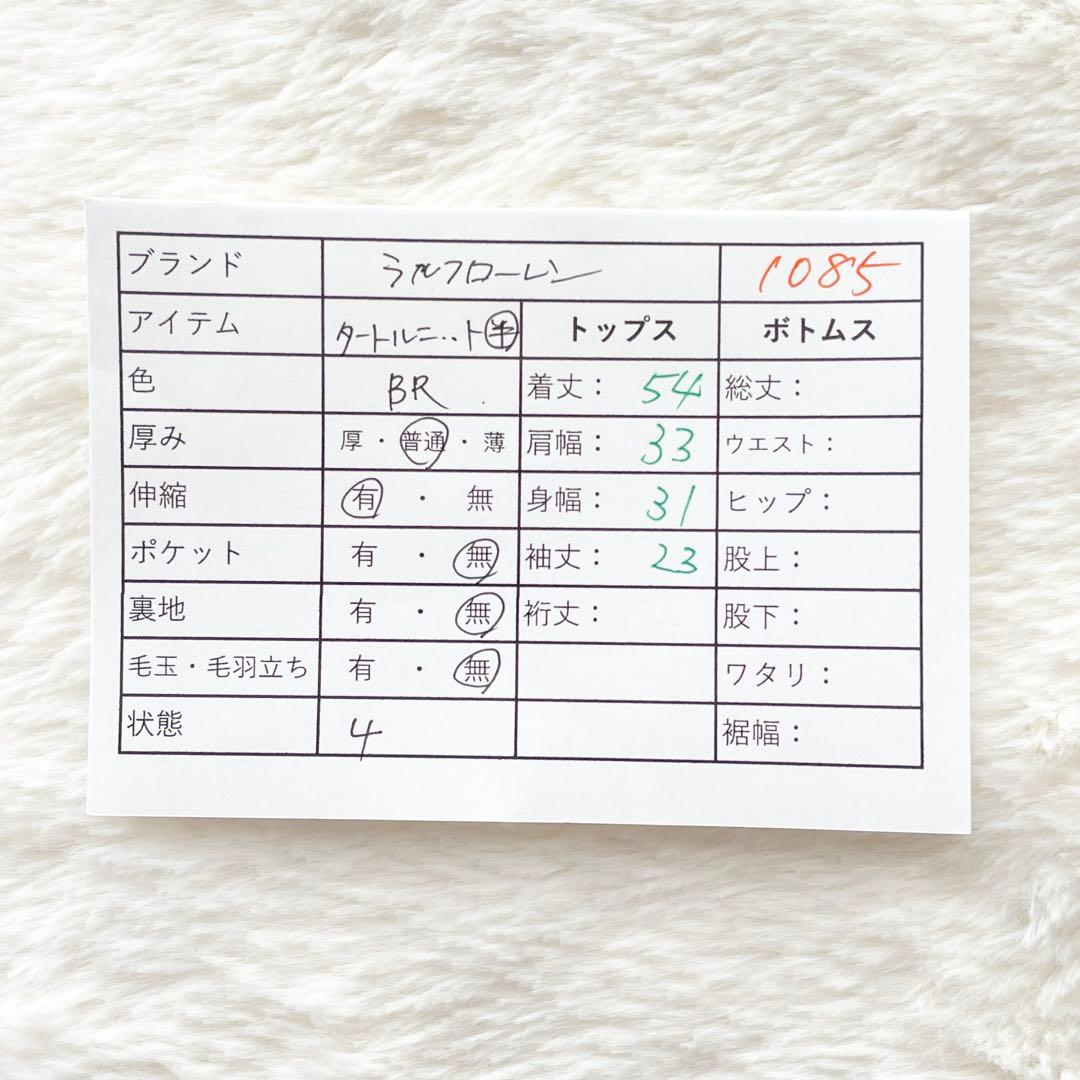 ブランド ラルフローレン 1085
アイテム タートルニット 半 トップス ボトムス
色 BR 着丈： 54 総丈：
厚み 厚・普通・薄 肩幅： 33 ウエスト：
伸縮 有・無 身幅： 31 ヒップ：
ポケット 有・無 袖丈： 23 股上：
裏地 有・無 裄丈： 股下：
毛玉・毛羽立ち 有・無 ワタリ：
状態 4 裾幅：